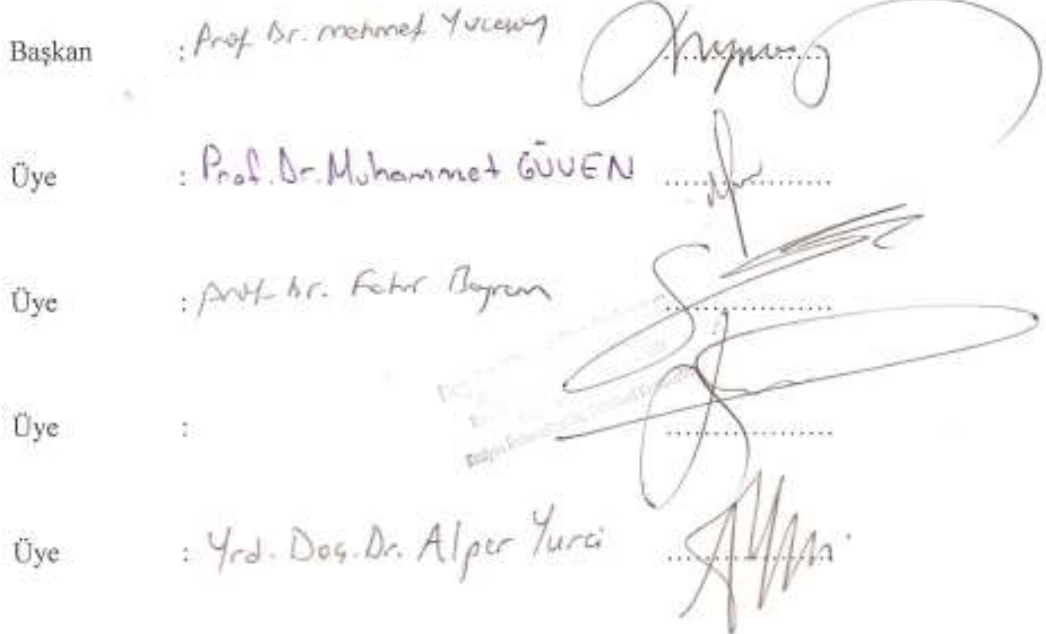 Başkan : Prof. Dr. mehmet Yücesoy
Üye : Prof. Dr. Muhammet GÜVEN
Üye : Prof. Dr. Fahir Bayram
Üye :
Üye : Yrd. Doç. Dr. Alper Yurci